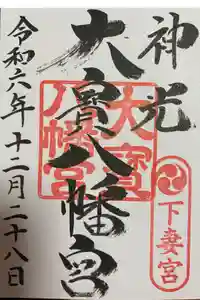 神光
大寳八幡宮
大寳
八幡宮
下妻宮
令和六年十二月二十八日